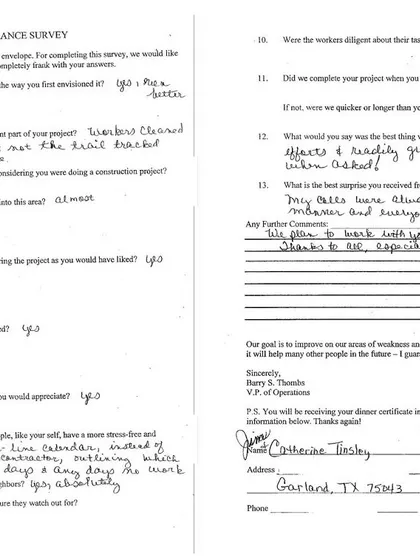 ANCE SURVEY
envelope. For completing this survey, we would like
ompletely frank with your answers.
the way you first envisioned it? yes, even
better
nt part of your project? Workers cleaned
not the trail tracked
onsidering you were doing a construction project?
into this area? almost
ring the project as you would have liked? yes
d? yes
ou would appreciate? yes
ple, like your self, have a more stress-free and
line calendar, instead of
contractor, outlining which
days & any days no work
ghbors? yes, absolutely
ure they watch out for?
10. Were the workers diligent about their tas
11. Did we complete your project when you
If not, were we quicker or longer than yo
12. What would you say was the best thing
efforts & readily
when asked!
13. What is the best surprise you received fr
My calls were
manner and everyo
Any Further Comments:
We plan to work with
Thanks to all, especia
Our goal is to improve on our areas of weakness an
it will help many other people in the future – I guar
Sincerely,
Barry S. Thombs
V.P. of Operations
P.S. You will be receiving your dinner certificate in
information below. Thanks again!
Name Catherine Tinsley
Address
Garland, TX 75043
Phone